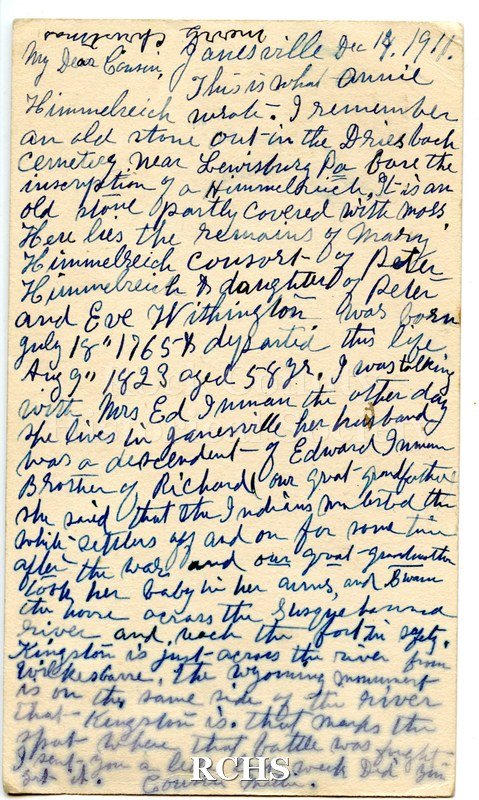 Merry Christmas
My Dear Cousin, Janesville Dec 14, 1911.
This is what Annie
Himmelreich wrote. I remember
an old stone out in the Driesbach
Cemetery near Lewisburg Pa bare the
inscription of a Himmelreich, It is an
old stone partly covered with moss
Here lies the remains of Mary
Himmelreich consort of Peter
Himmelreich & daughter of Peter
and Eve Withington was born
July 18" 1765 & departed this life
Aug 9" 1823 aged 58 yr. I was talking
with Mrs Ed Inman the other day
she lives in Janesville her husband
was a descendent of Edward Inman
Brother of Richard our great grandfather
she said that the Indians molested the
white settlers off and on for some time
after the war and our great-grandmother
took her baby in her arms, and swam
the horse across the Susquehanna
river and reach the fort in safety.
Kingston is just across the river from
Wilkesbarre. The Wyoming monument
is on the same side of the river
that Kingston is. that marks the
spot where that battle was fought
I sent you a last week Did you
get it. Cousin
RCHS